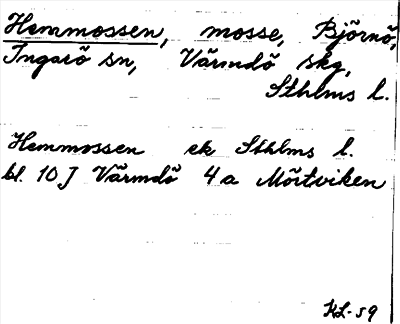 Hemmossen, mosse, Björnö,
Ingarö sn, Värmdö skg,
Sthlms l.
Hemmossen ek Sthlms l.
bl. 10 J Värmdö 4a Mörtviken
KL-59